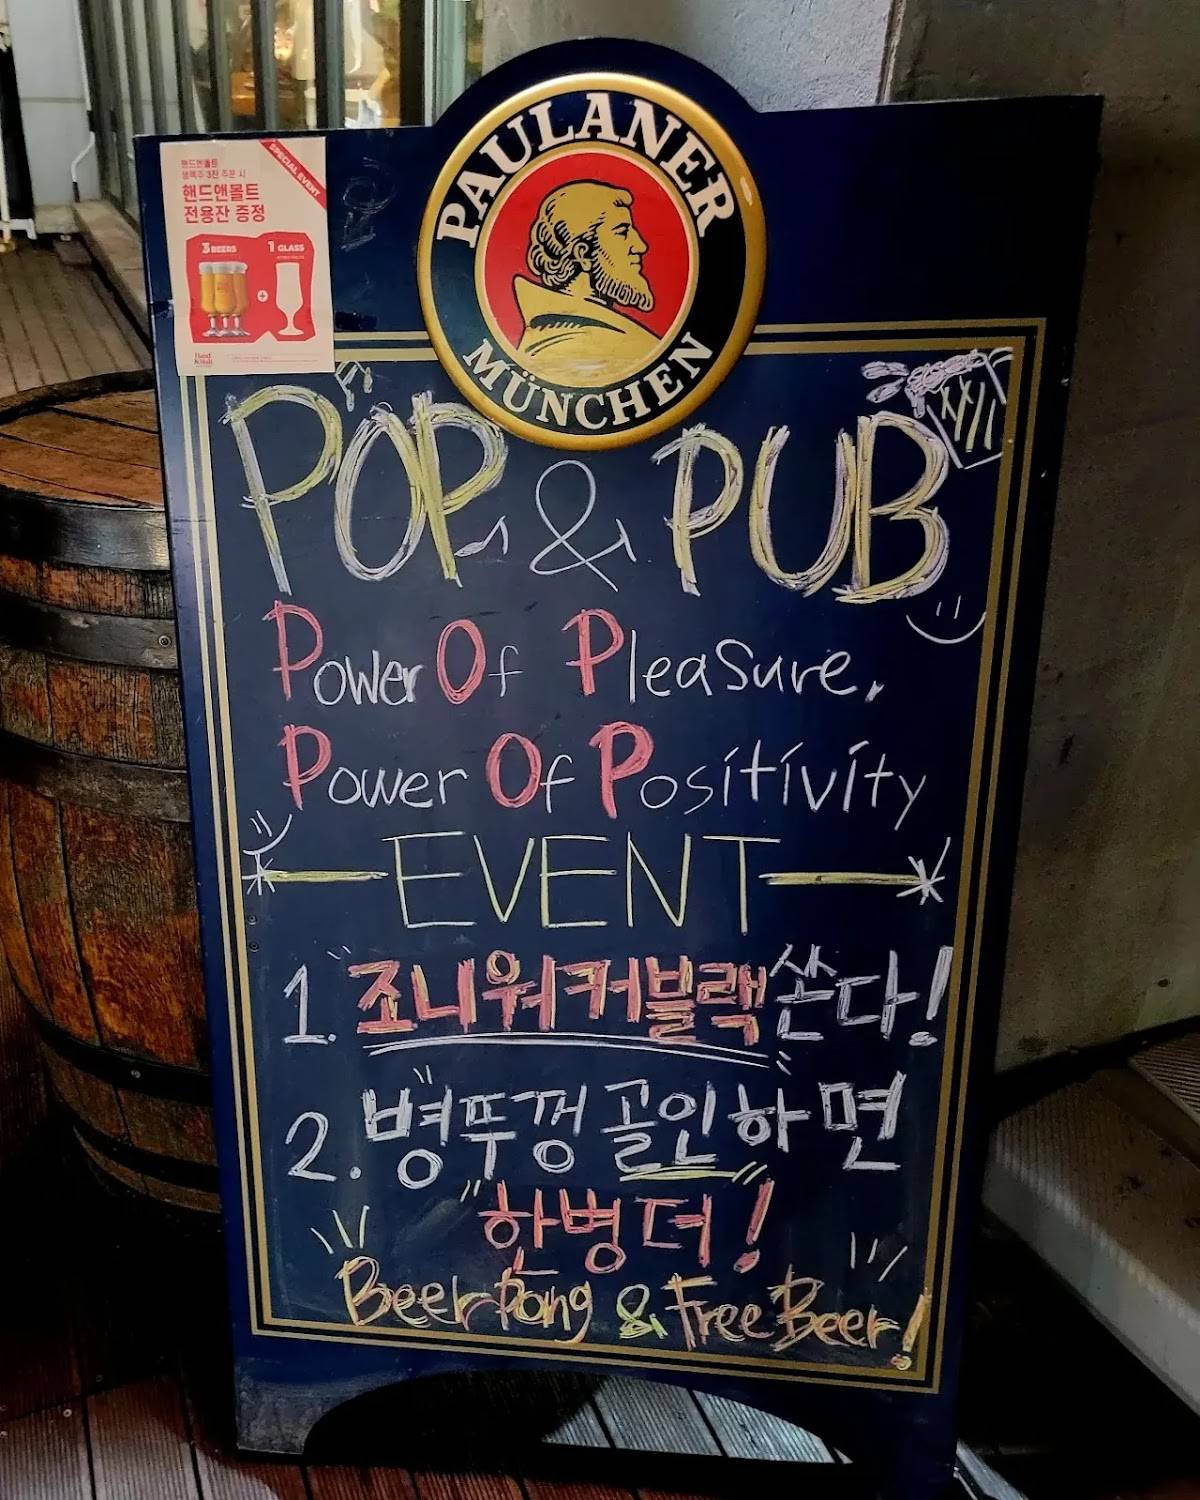 PAULANER
MÜNCHEN
SPECIAL EVENT
핸드앤몰트
생맥주 3잔 주문 시
핸드앤몰트
전용잔 증정
3 BEERS
1 GLASS
+
Hand
& Malt
POP & PUB
Power Of Pleasure.
Power Of Positivity
EVENT
1. 조니워커블랙쏜다!
2. 병뚜껑골인하면
한병더!
Beer Pong & Free Beer!